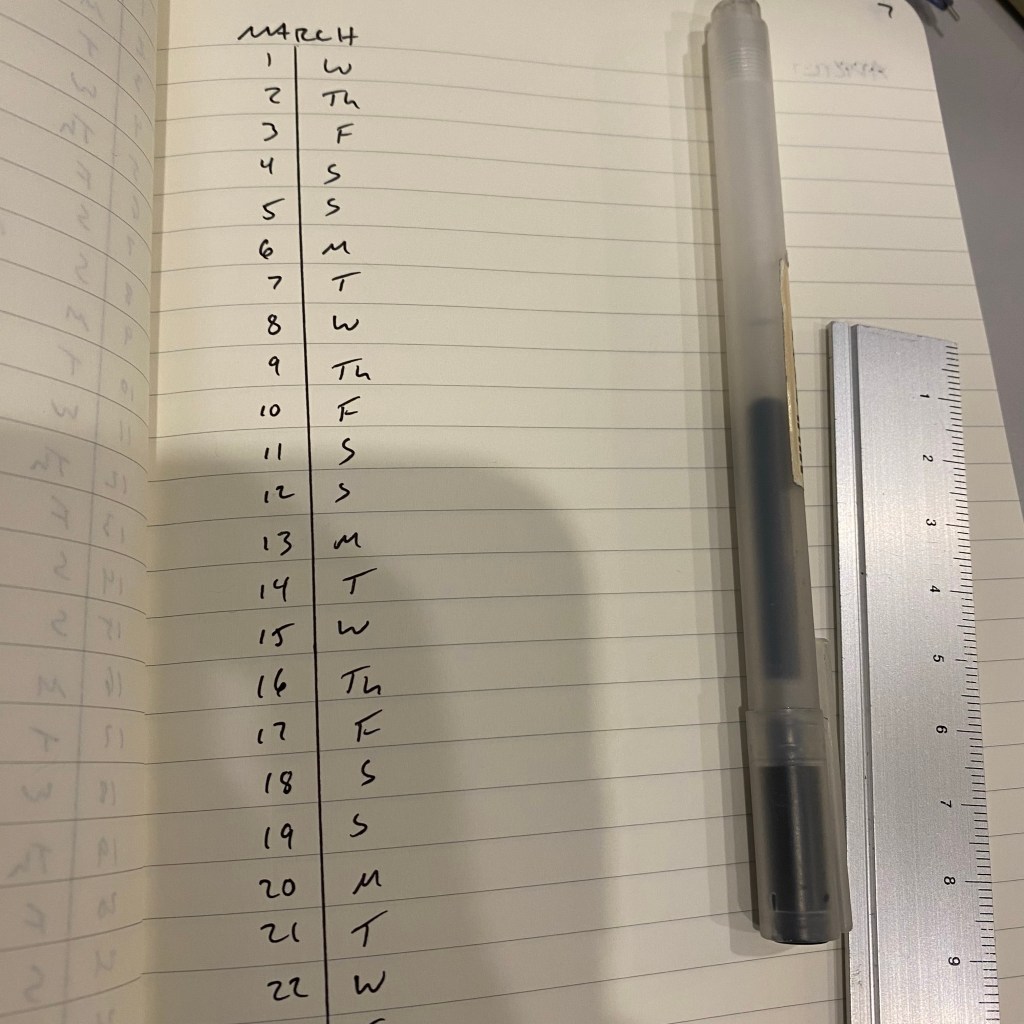 MARCH
1 W
2 Th
3 F
4 S
5 S
6 M
7 T
8 W
9 Th
10 F
11 S
12 S
13 M
14 T
15 W
16 Th
17 F
18 S
19 S
20 M
21 T
22 W
1
2
3
4
5
6
7
8
9